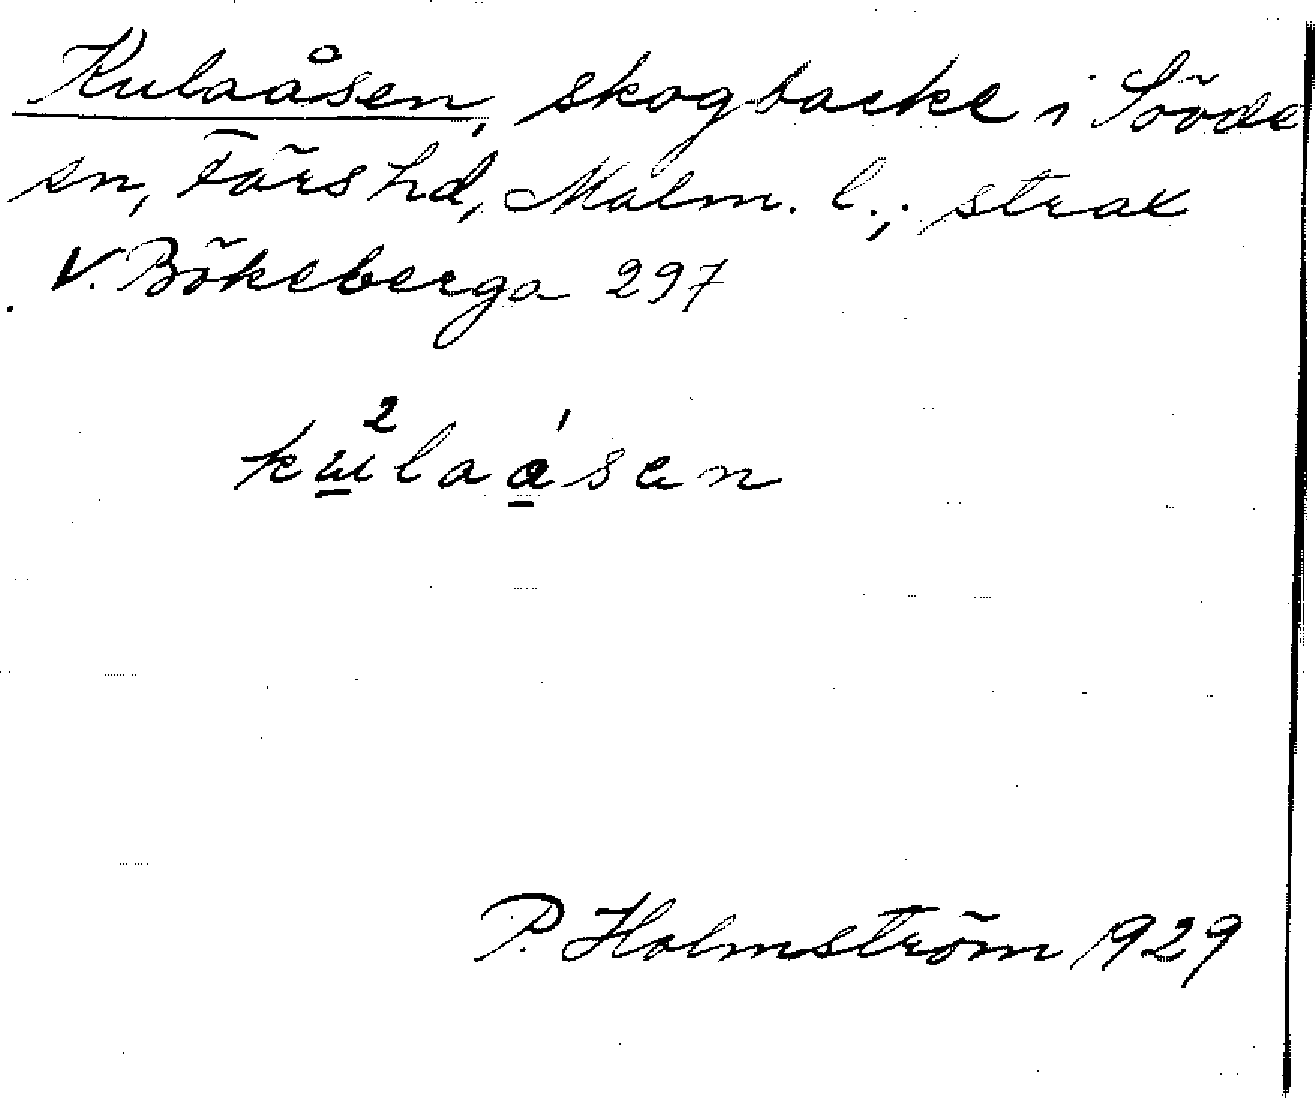 Kulaåsen, skogbacke i Sövde
sn, Färs hd, Malm. l.; strax
V. Bökeberga 297
P. Holmström 1929